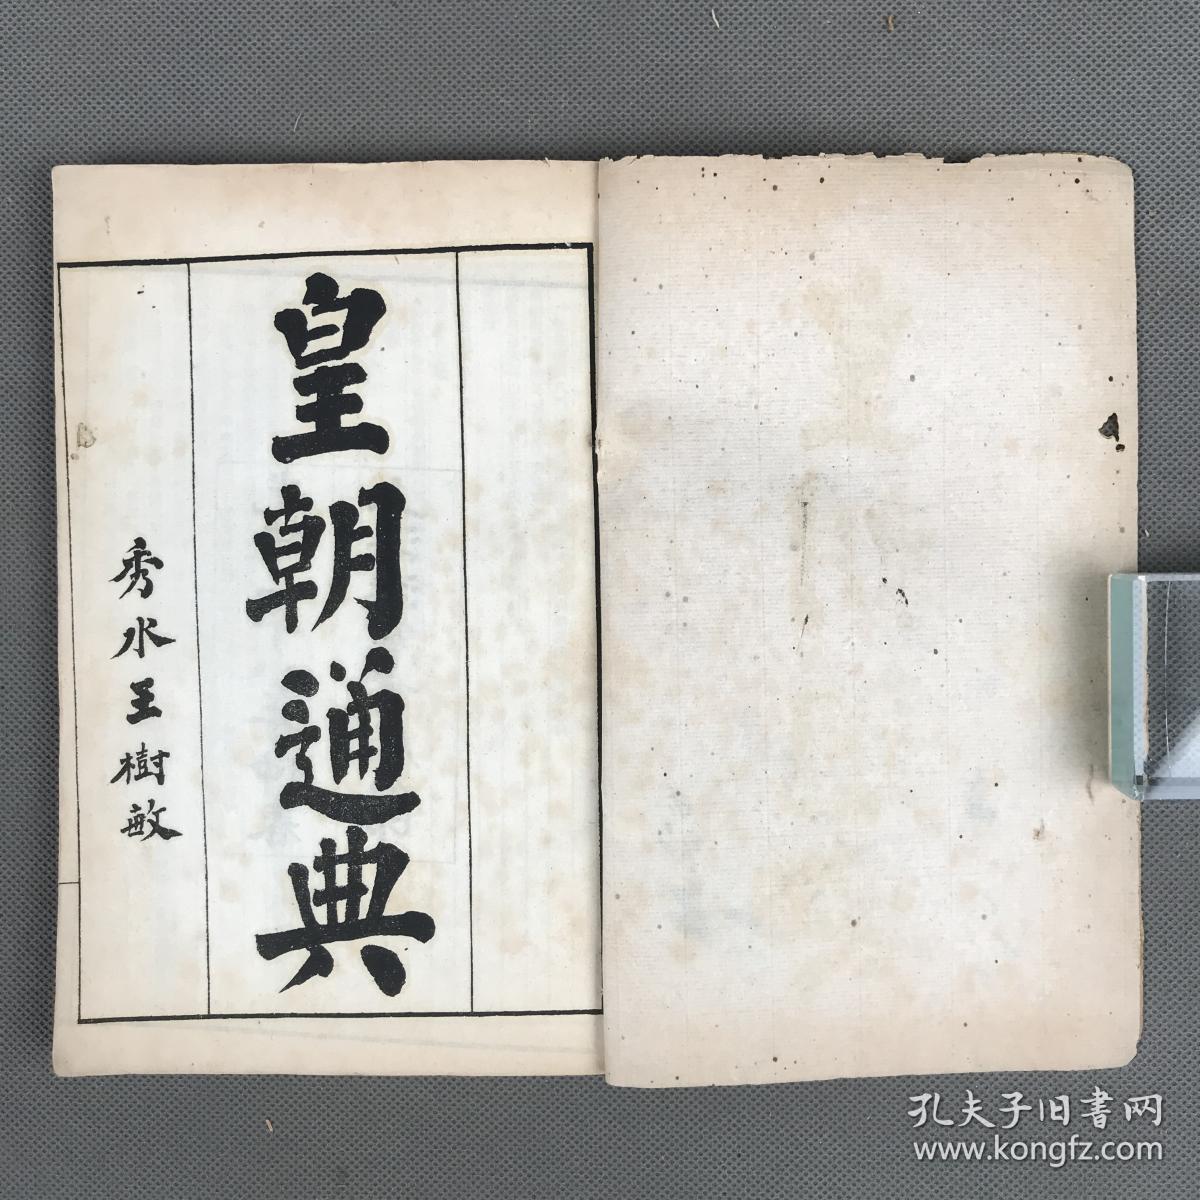 皇朝通典
秀水王樹敏
孔夫子旧書网
www.kongfz.com